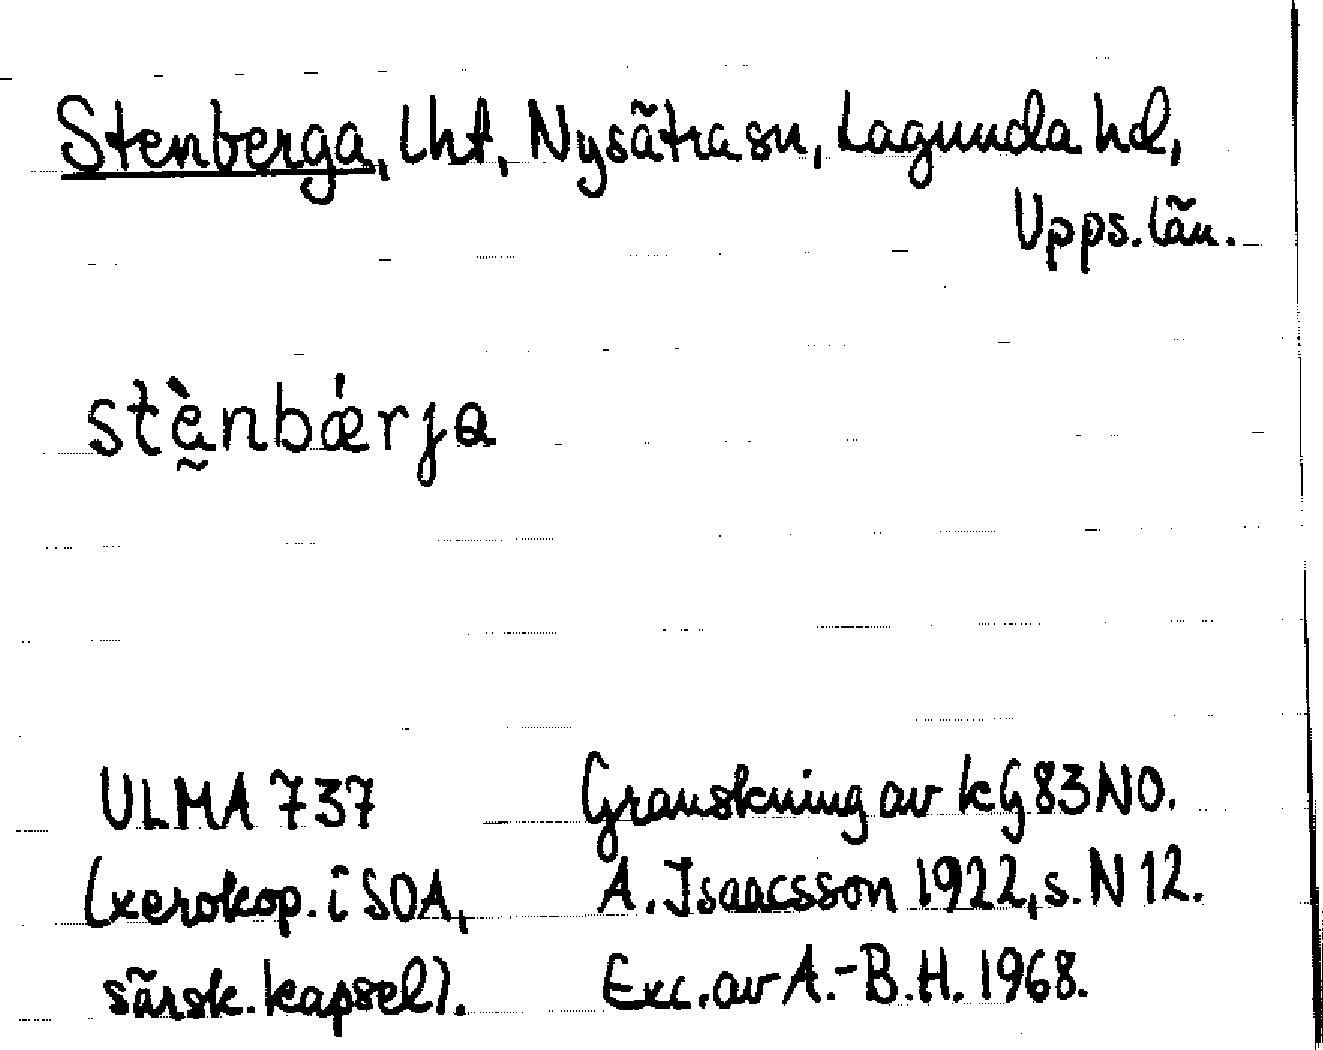 Stenberga, Lht, Nysätra sn, Lagunda hd,
Upps. län.
stḛ̀nbǽrja
ULMA 737
(xerokop. i SOA,
särsk. kapsel).
Granskning av kG 83 NO.
A. Isaacsson 1922, s. N 12.
Exc. av A.-B. H. 1968.